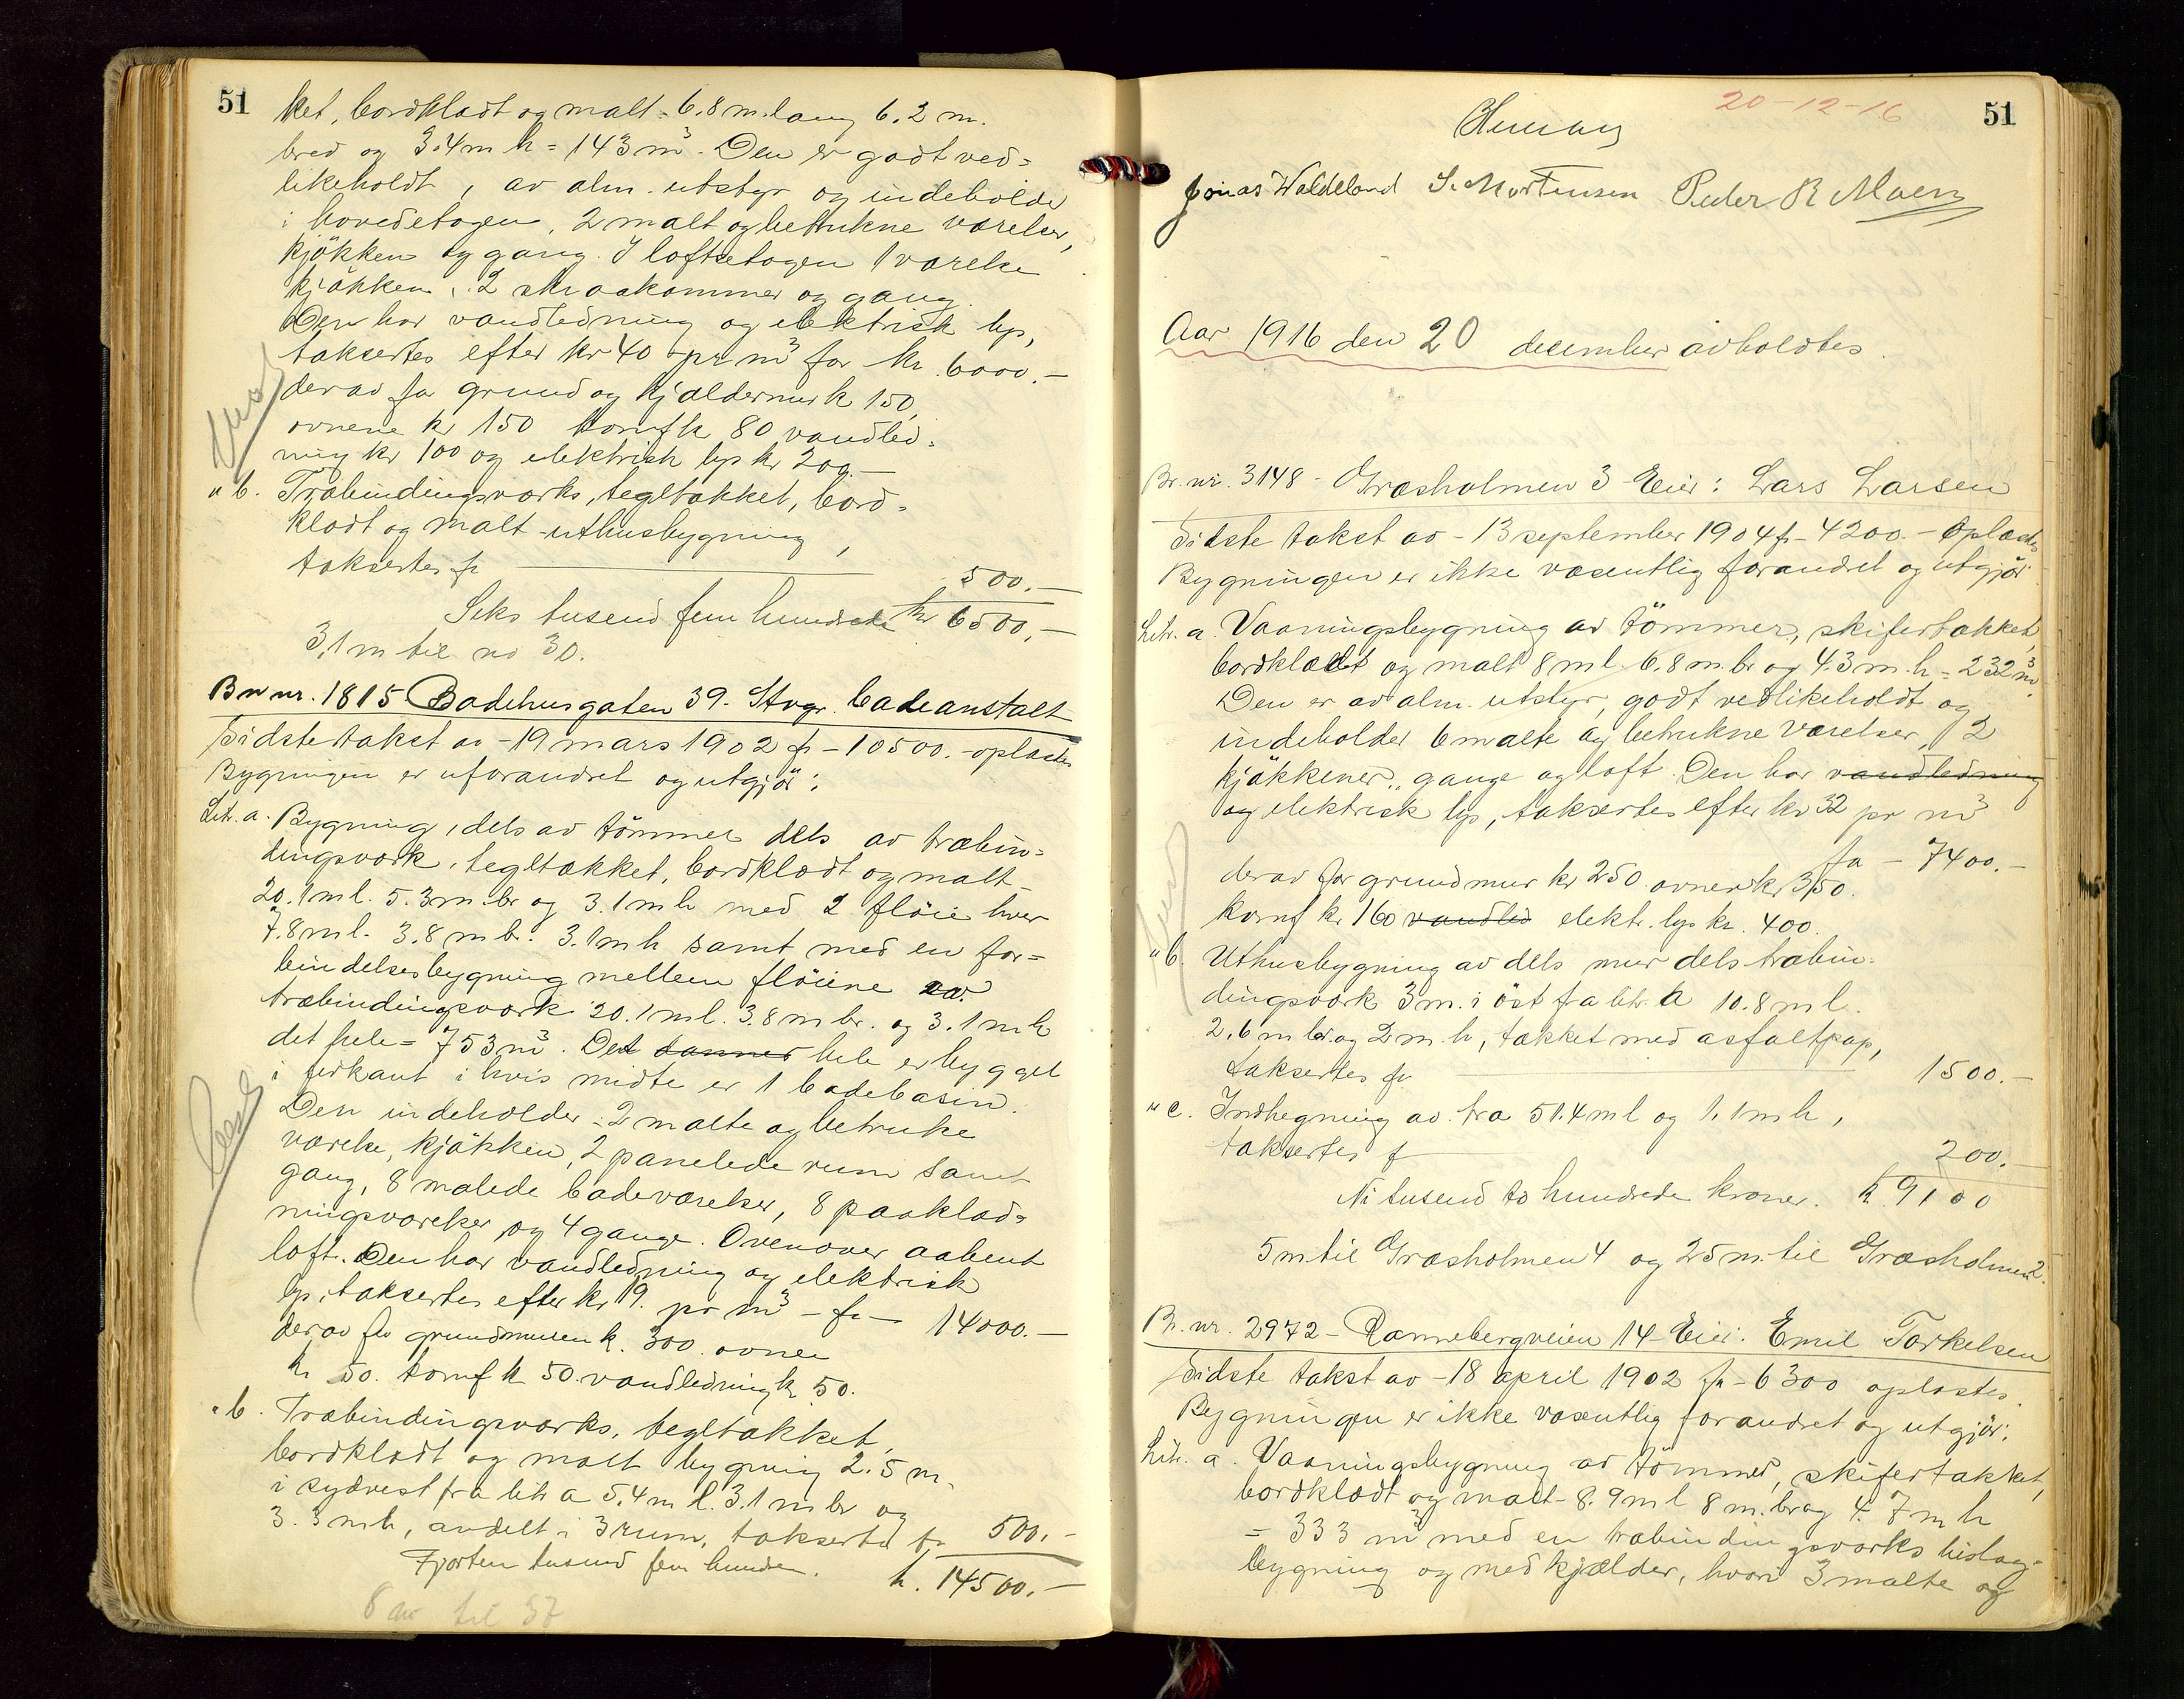 51
ket, bordklædt og malt = 6.8 m. lang 6.2 m.
bred og 3.4 m h = 143 m³. Den er godt ved=
likeholdt, av alm. utstyr og indeholder
i hovedetagen, 2 malt og betrukne værelser,
kjökken og gang. I loftsetagen 1 værelse
kjökken, 2 skraakammer og gang.
Den har vandledning og elektrisk lys,
taksertes efter kr 40 pr m³ for kr. 6000.–
derav for grund og kjældermur k 150,
ovnene kr 150 komf k 80 vandled=
ning kr 100 og elektrisk lys kr 200.–
" b. Træbindingsværks, tegltækket, bord=
klædt og malt uthusbygning,
taksertes fr 500.–
Seks tusend fem hundrede kr 6500.–
3,1 m til no 30.
Br nr. 1815 Badehusgaten 39. Stvgr. badeanstalt
Sidste takst av – 19 mars 1902 fr – 10500.– oplæstes
Bygningen er uforandret og utgjör:
Litr. a. Bygning, dels av tömmer dels av træbin=
dingsværk, tegltækket, bordklædt og malt –
20.1 m l. 5.3 m. br og 3.1 m h med 2 flöie hver
7.8 m l. 3.8 m b. 3.1 m h samt med en for=
bindelsesbygning mellem flöiene av
træbindingsværk 20.1 m l. 3.8 m br. og 3.1 m h
det hele = 753 m³. Det danner hele er bygget
i firkant i hvis midte er 1 badebasin.
Den indeholder = 2 malte og betrukne
værelse, kjökken, 2 panelede rum samt
gang, 8 malede badeværelser, 8 paaklæd=
ningsværelser og 4 gange. Ovenover aabent
loft. Den har vandledning og elektrisk
lys, taksertes efter kr 19. pr m³ – fr – 14000.–
derav for grundmuren k. 300. ovner
kr 50. komf k 50. vandledning k 50.
" b. Træbindingsværks, tegltækket,
bordklædt og malt bygning 2.5 m.
i sydvest fra litr a 5.4 m l. 3.1 m br og
3.3 m h, avdelt i 3 rum, taksertes fr 500.–
Fjorten tusend fem hundre. k. 14500.–
til 37
20-12-16
51
Jonas Waldeland S. Mortensen Peder R Moen
Aar 1916 den 20 december avholdtes
Br. nr. 3148 – Græsholmen 3 Eier: Lars Larsen
Sidste takst av – 13 september 1904 fr – 4200.– oplæstes
Bygningen er ikke væsentlig forandret og utgjör
Litr. a. Vaaningsbygning av tömmer, skifertækket,
bordklædt og malt 8 m l 6.8 m. br og 4.3 m. h. = 232 m³.
Den er av alm. utstyr, godt vedlikeholdt og
indeholder 6 malte og betrukne værelser, 2
kjökkener, gange og loft. Den har vandledning
og elektrisk lys, taksertes efter kr 32 pr m³
fr – 7400.–
derav for grundmur kr 250. ovner kr 350.
komf kr. 160 vandled elektr. lys kr. 400.
" b. Uthusbygning av dels mur dels træbin=
dingsværk 3 m. i öst fra litr. a 10.8 m l.
2.6 m br og 2 m. h, tækket med asfaltpap,
taksertes fr 1500.–
" c. Indhegning av træ 51.4 m l og 1.1 m h,
taksertes f 200.–
Ni tusend to hundrede kroner. k. 9100
5 m til Græsholmen 4 og 25 m. til Græsholmen 2.
Br. nr. 2972 – Rannebergveien 14 – Eier: Emil Torkelsen
Sidste takst av – 18 april 1902 fr – 6300 oplæstes.
Bygningen er ikke væsentlig forandret og utgjör:
Litr. a. Vaaningsbygning av tömmer, skifertækket,
bordklædt og malt – 8.9 m l 8 m. br og 4.7 m h
= 333 m³ med en træbindingsværks bislag=
bygning og med kjælder, hvori 3 malte og